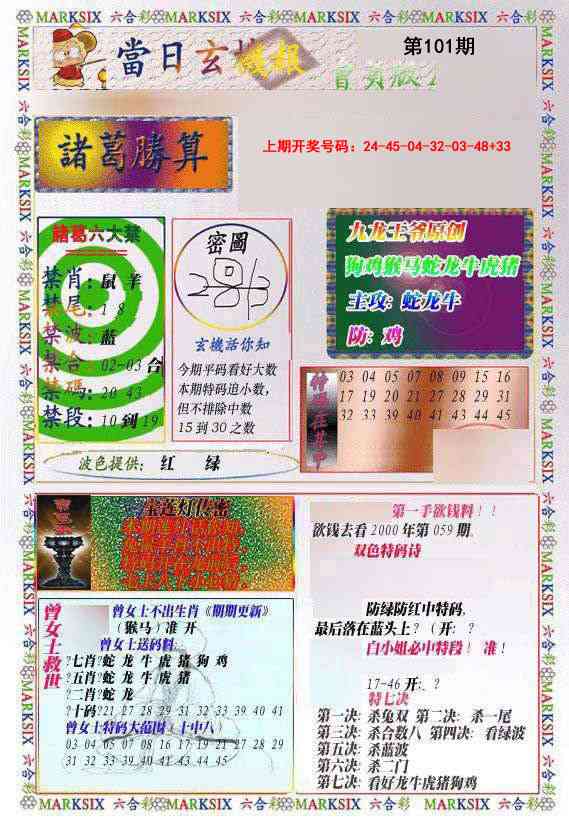 MARKSIX 六合彩 MARKSIX 六合彩 MARKSIX 六合彩 MARKSIX 六合彩 MARKSIX
當日玄機報
第101期
上期开奖号码：24-45-04-32-03-48+33
諸葛勝算
諸葛六大禁
禁肖：鼠 羊
禁尾：1 8
禁波：蓝
禁合：02-03 合
禁碼：20 43
禁段：10 到 19
密圖
玄機話你知
今期平码看好大数
本期特码追小数，
但不排除中数
15 到 30 之数
九龙王爷原创
狗鸡猴马蛇龙牛虎猪
主攻：蛇龙牛
防：鸡
03 04 05 07 08 09 15 16
17 19 20 21 27 28 29 31
32 33 39 40 41 43 44 45
波色提供： 红 绿
宝莲灯传密
第一手欲钱料！！
欲钱去看 2000 年第 059 期。
双色特码诗
防绿防红中特码，
最后落在蓝头上？（开：？
白小姐必中特段！ 准！
17-46 开：？
特七决
第一决：杀兔双 第二决：杀一尾
第三决：杀合数八 第四决：看绿波
第五决：杀蓝波
第六决：杀二门
第七决：看好龙牛虎猪狗鸡
曾女士救世
曾女士不出生肖《期期更新》
（猴马）准 开
曾女士送码料
?七肖?蛇 龙 牛 虎 猪 狗 鸡
?五肖?蛇 龙 牛 虎 猪
?二肖?蛇 龙
?十码?21 27 28 29 31 32 33 39 40 41
曾女士特码大范围：十中八
03 04 05 07 08 16 17 19 21 27 28 29
31 32 33 39 40 41 43 44 45
MARKSIX 六合彩 MARKSIX 六合彩 MARKSIX 六合彩 MARKSIX 六合彩 MARKSIX